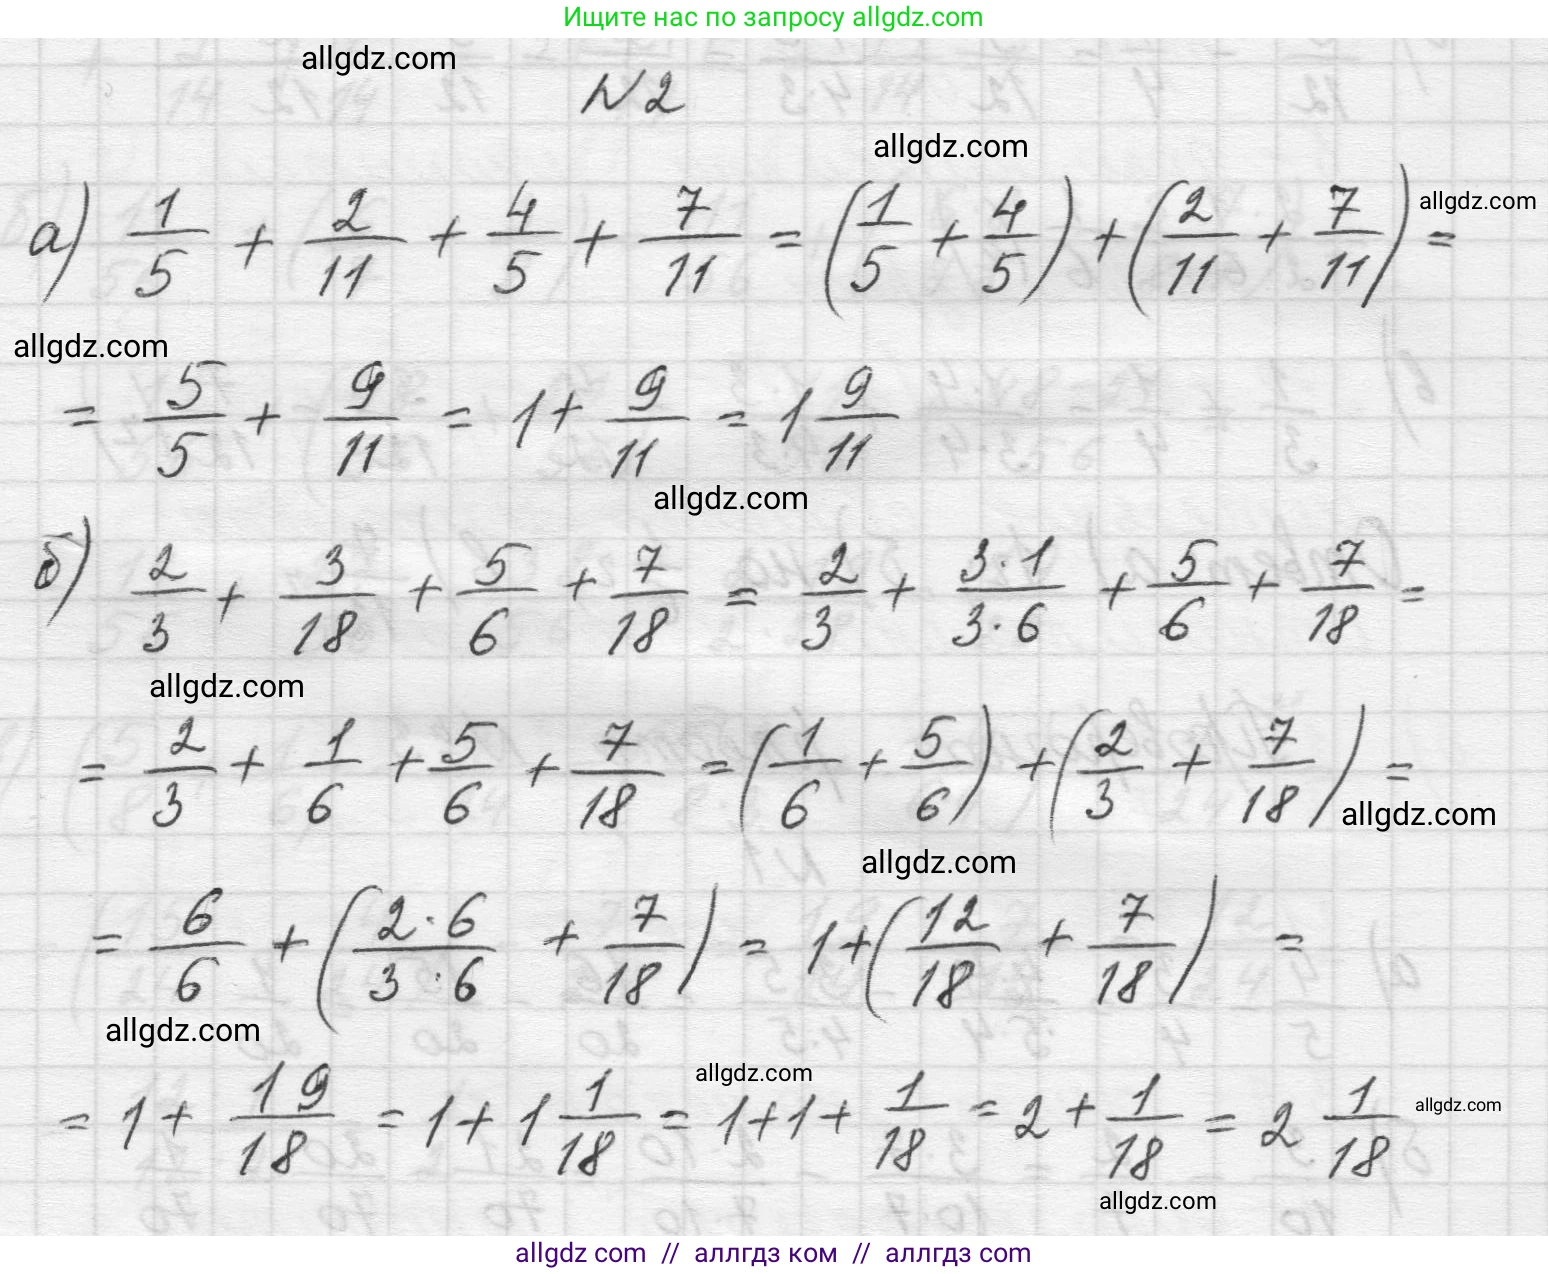 Ищите нас по запросу allgdz.com
allgdz.com
N2
allgdz.com
а) 1/5 + 2/11 + 4/5 + 7/11 = (1/5 + 4/5) + (2/11 + 7/11) =
allgdz.com
allgdz.com
= 5/5 + 9/11 = 1 + 9/11 = 1 9/11
allgdz.com
б) 2/3 + 3/18 + 5/6 + 7/18 = 2/3 + 3·1/3·6 + 5/6 + 7/18 =
allgdz.com
= 2/3 + 1/6 + 5/6 + 7/18 = (1/6 + 5/6) + (2/3 + 7/18) =
allgdz.com
allgdz.com
= 6/6 + (2·6/3·6 + 7/18) = 1 + (12/18 + 7/18) =
allgdz.com
allgdz.com
= 1 + 19/18 = 1 + 1 1/18 = 1 + 1 + 1/18 = 2 + 1/18 = 2 1/18
allgdz.com
allgdz.com
allgdz com // аллгдз ком // allgdz com